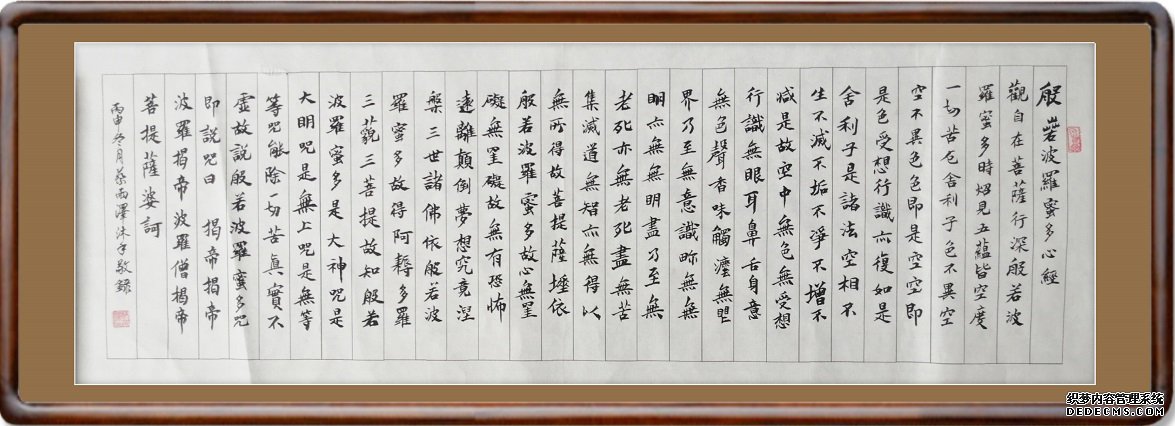 般若波羅蜜多心經
觀自在菩薩行深般若波
羅蜜多時炤見五蘊皆空度
一切苦厄舍利子色不異空
空不異色色即是空空即
是色受想行識亦復如是
舍利子是諸法空相不
生不滅不垢不淨不增不
減是故空中無色無受想
行識無眼耳鼻舌身意
無色聲香味觸灋無眼
界乃至無意識界無無
明亦無無明盡乃至無
老死亦無老死盡無苦
集滅道無智亦無得以
無所得故菩提薩埵依
般若波羅蜜多故心無罣
礙無罣礙故無有恐怖
遠離顛倒夢想究竟涅
槃三世諸佛依般若波
羅蜜多故得阿耨多羅
三藐三菩提故知般若
波羅蜜多是大神咒是
大明咒是無上咒是無等
等咒能除一切苦真實不
虛故說般若波羅蜜多咒
即說咒曰 揭帝揭帝
波羅揭帝波羅僧揭帝
菩提薩婆訶
丙申冬月蔡雨澤沐手敬錄
织梦内容管理系统
DEDECMS.COM